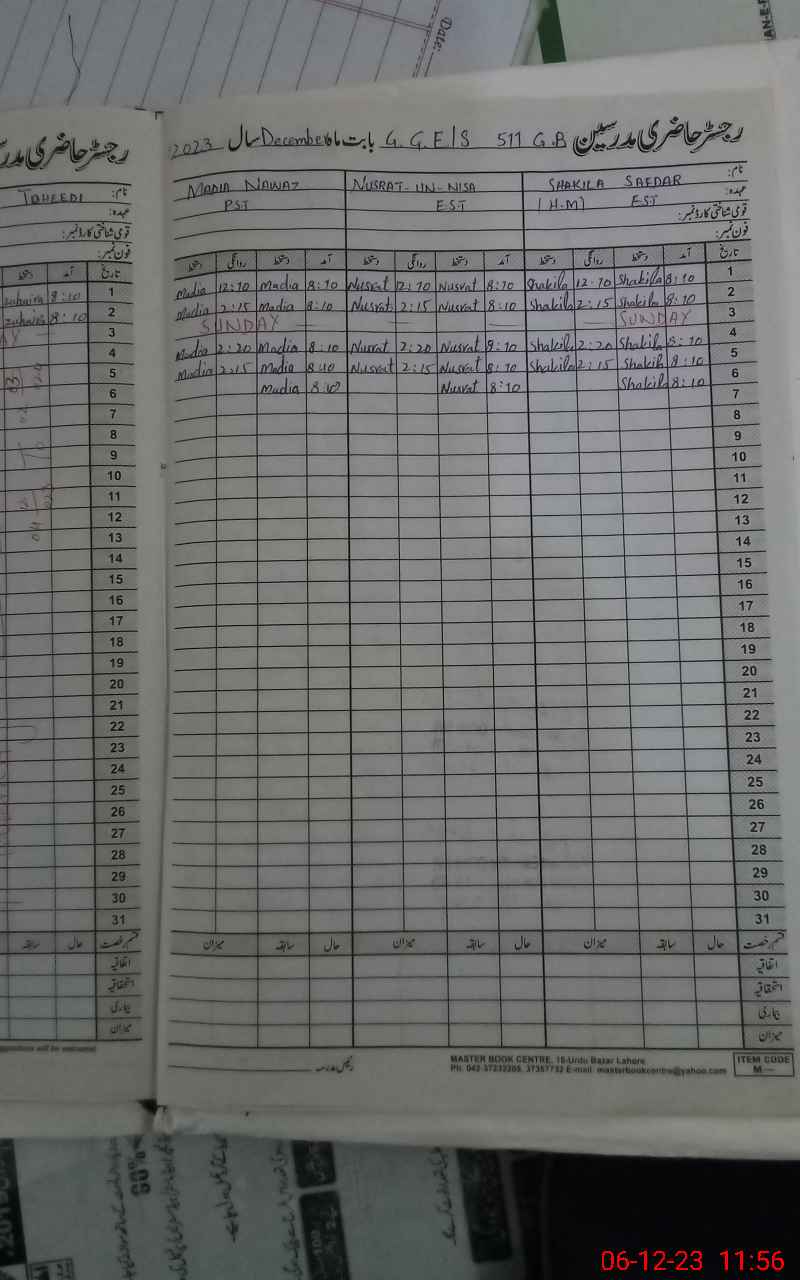 Date:
رجسٹر حاضری مدرسین G.G.E/S 511 G.B بابت ماہ December سال 2023
رجسٹر حاضری مدر
نام: SHAKILA SAFDAR NUSRAT-UN-NISA MADIA NAWAZ
عہدہ: (H.M) EST E.S.T P.S.T
قومی شناختی کارڈ نمبر:
فون نمبر:
نام: TOHEEDI
عہدہ:
قومی شناختی کارڈ نمبر:
فون نمبر:
تاریخ آمد دستخط روانگی دستخط آمد دستخط روانگی دستخط آمد دستخط روانگی دستخط
1 8:10 Shakila 12:10 Shakila 8:10 Nusrat 12:10 Nusrat 8:10 Madia 12:10 Madia
2 8:10 Shakila 2:15 Shakila 8:10 Nusrat 2:15 Nusrat 8:10 Madia 2:15 Madia
3 SUNDAY SUNDAY
4 8:10 Shakila 2:20 Shakila 8:10 Nusrat 2:20 Nusrat 8:10 Madia 2:20 Madia
5 8:10 Shakila 2:15 Shakila 8:10 Nusrat 2:15 Nusrat 8:10 Madia 2:15 Madia
6 8:10 Shakila 8:10 Nusrat 8:10 Madia
7
8
9
10
11
12
13
14
15
16
17
18
19
20
21
22
23
24
25
26
27
28
29
30
31
قسم رخصت حال سابقہ میزان حال سابقہ میزان حال سابقہ میزان
اتفاقیہ
استحقاقیہ
بیماری
میزان
تاریخ آمد دستخط
1 8:10 zuhaira
2 8:10 zuhaira
3
4
5
6
7
8
9
10
11
12
13
14
15
16
17
18
19
20
21
22
23
24
25
26
27
28
29
30
31
قسم رخصت حال سابقہ
اتفاقیہ
استحقاقیہ
بیماری
میزان
رئیس مدرسہ
MASTER BOOK CENTRE, 18-Urdu Bazar Lahore
Ph: 042-37232205, 37357732 E-mail: masterbookcentre@yahoo.com
ITEM CODE
M—
60%
06-12-23 11:56